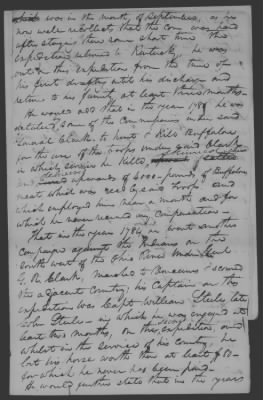 which was in the month of September, as he
now well recollects that the corn was hard
after staying there some short time the
expedition returned to Kentucky, he was
out on this expedition from the time of
his first drafting until his discharge and
return to his family, at least three months.
He would add that in the year 1780 he was
detailed some of the Commissioners in under said
General Clark to hunt & kill Buffaloe
for the use of the troops under said Clark
in which service he killed,
and upwards of 4000 pounds of Buffaloe
meat which was rec'd by said troops and
which employed him near a month and for
which he never received any Compensation
That in the year 1786 he went another
Campaign against the Indians on the
south west of the Ohio River under Genl
G. R. Clark, marched to & scoured
the adjacent Country, his Captain on this
expedition was Capt William Steele late
John Steele in which he was engaged at
least three months, on this expedition, and
whilst in the service of his country, he
lost his horse worth then at least $
for which he never has been paid.
He would further state that in the years